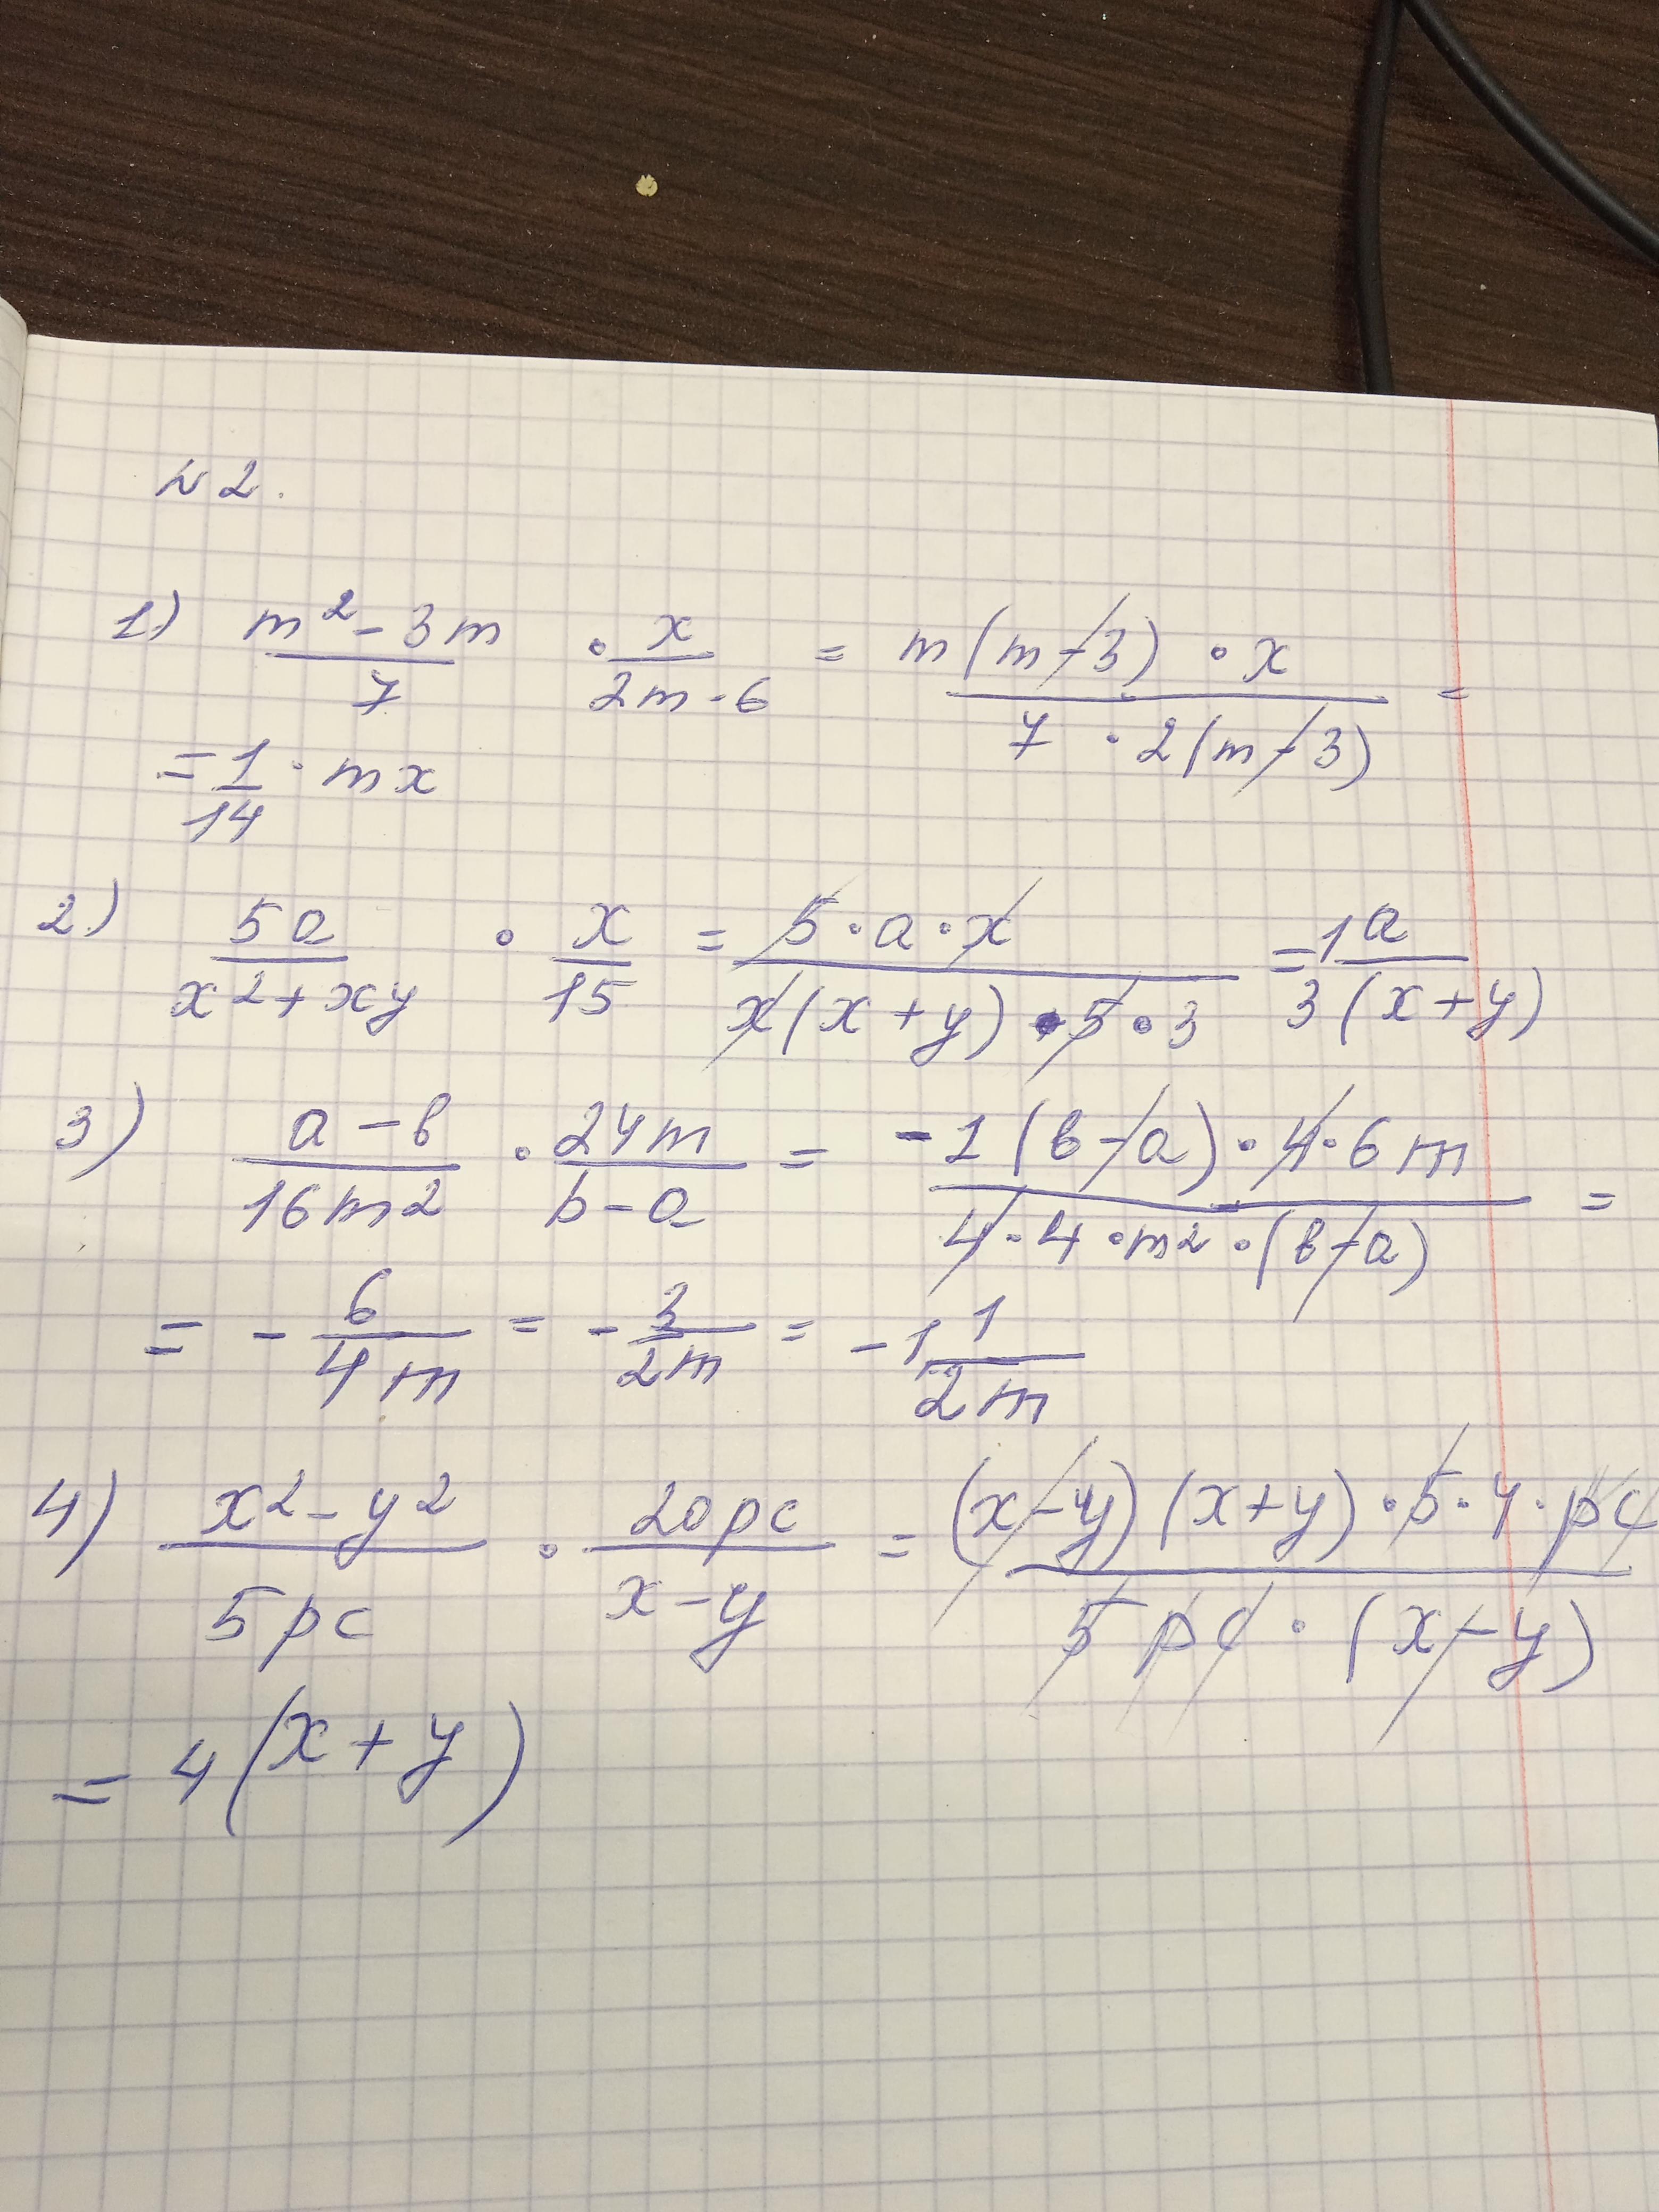 № 2.
1) (m² - 3m)/7 · x/(2m - 6) = (m(m-3) · x)/(7 · 2(m-3)) =
= 1/14 · mx
2) 5a/(x2+xy) · x/15 = (5·a·x)/(x(x+y)·5·3) = 1a/(3(x+y))
3) (a-в)/(16m2) · 24m/(b-a) = (-1(в-a)·4·6m)/(4·4·m2·(в-a)) =
= - 6/(4m) = - 3/(2m) = -1 1/(2m)
4) (x2-y2)/(5pc) · 20pc/(x-y) = ((x-y)(x+y)·5·4·pc)/(5pc·(x-y))
= 4(x+y)